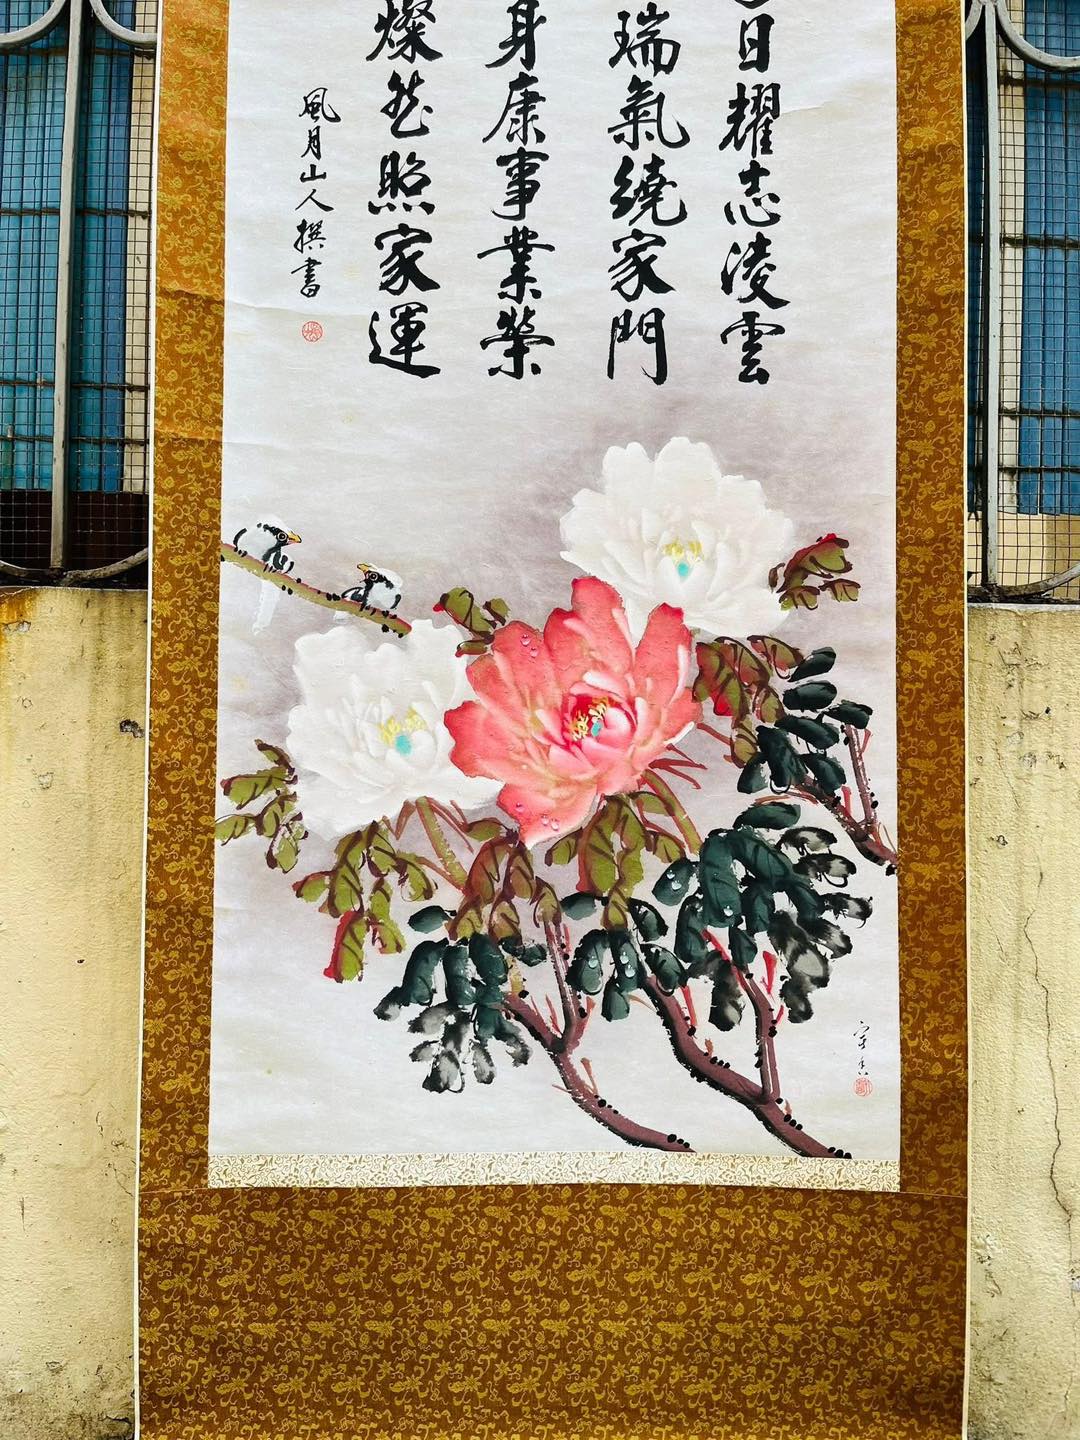 日耀志凌雲
瑞氣繞家門
身康事業榮
燦然照家運
風月山人撰書